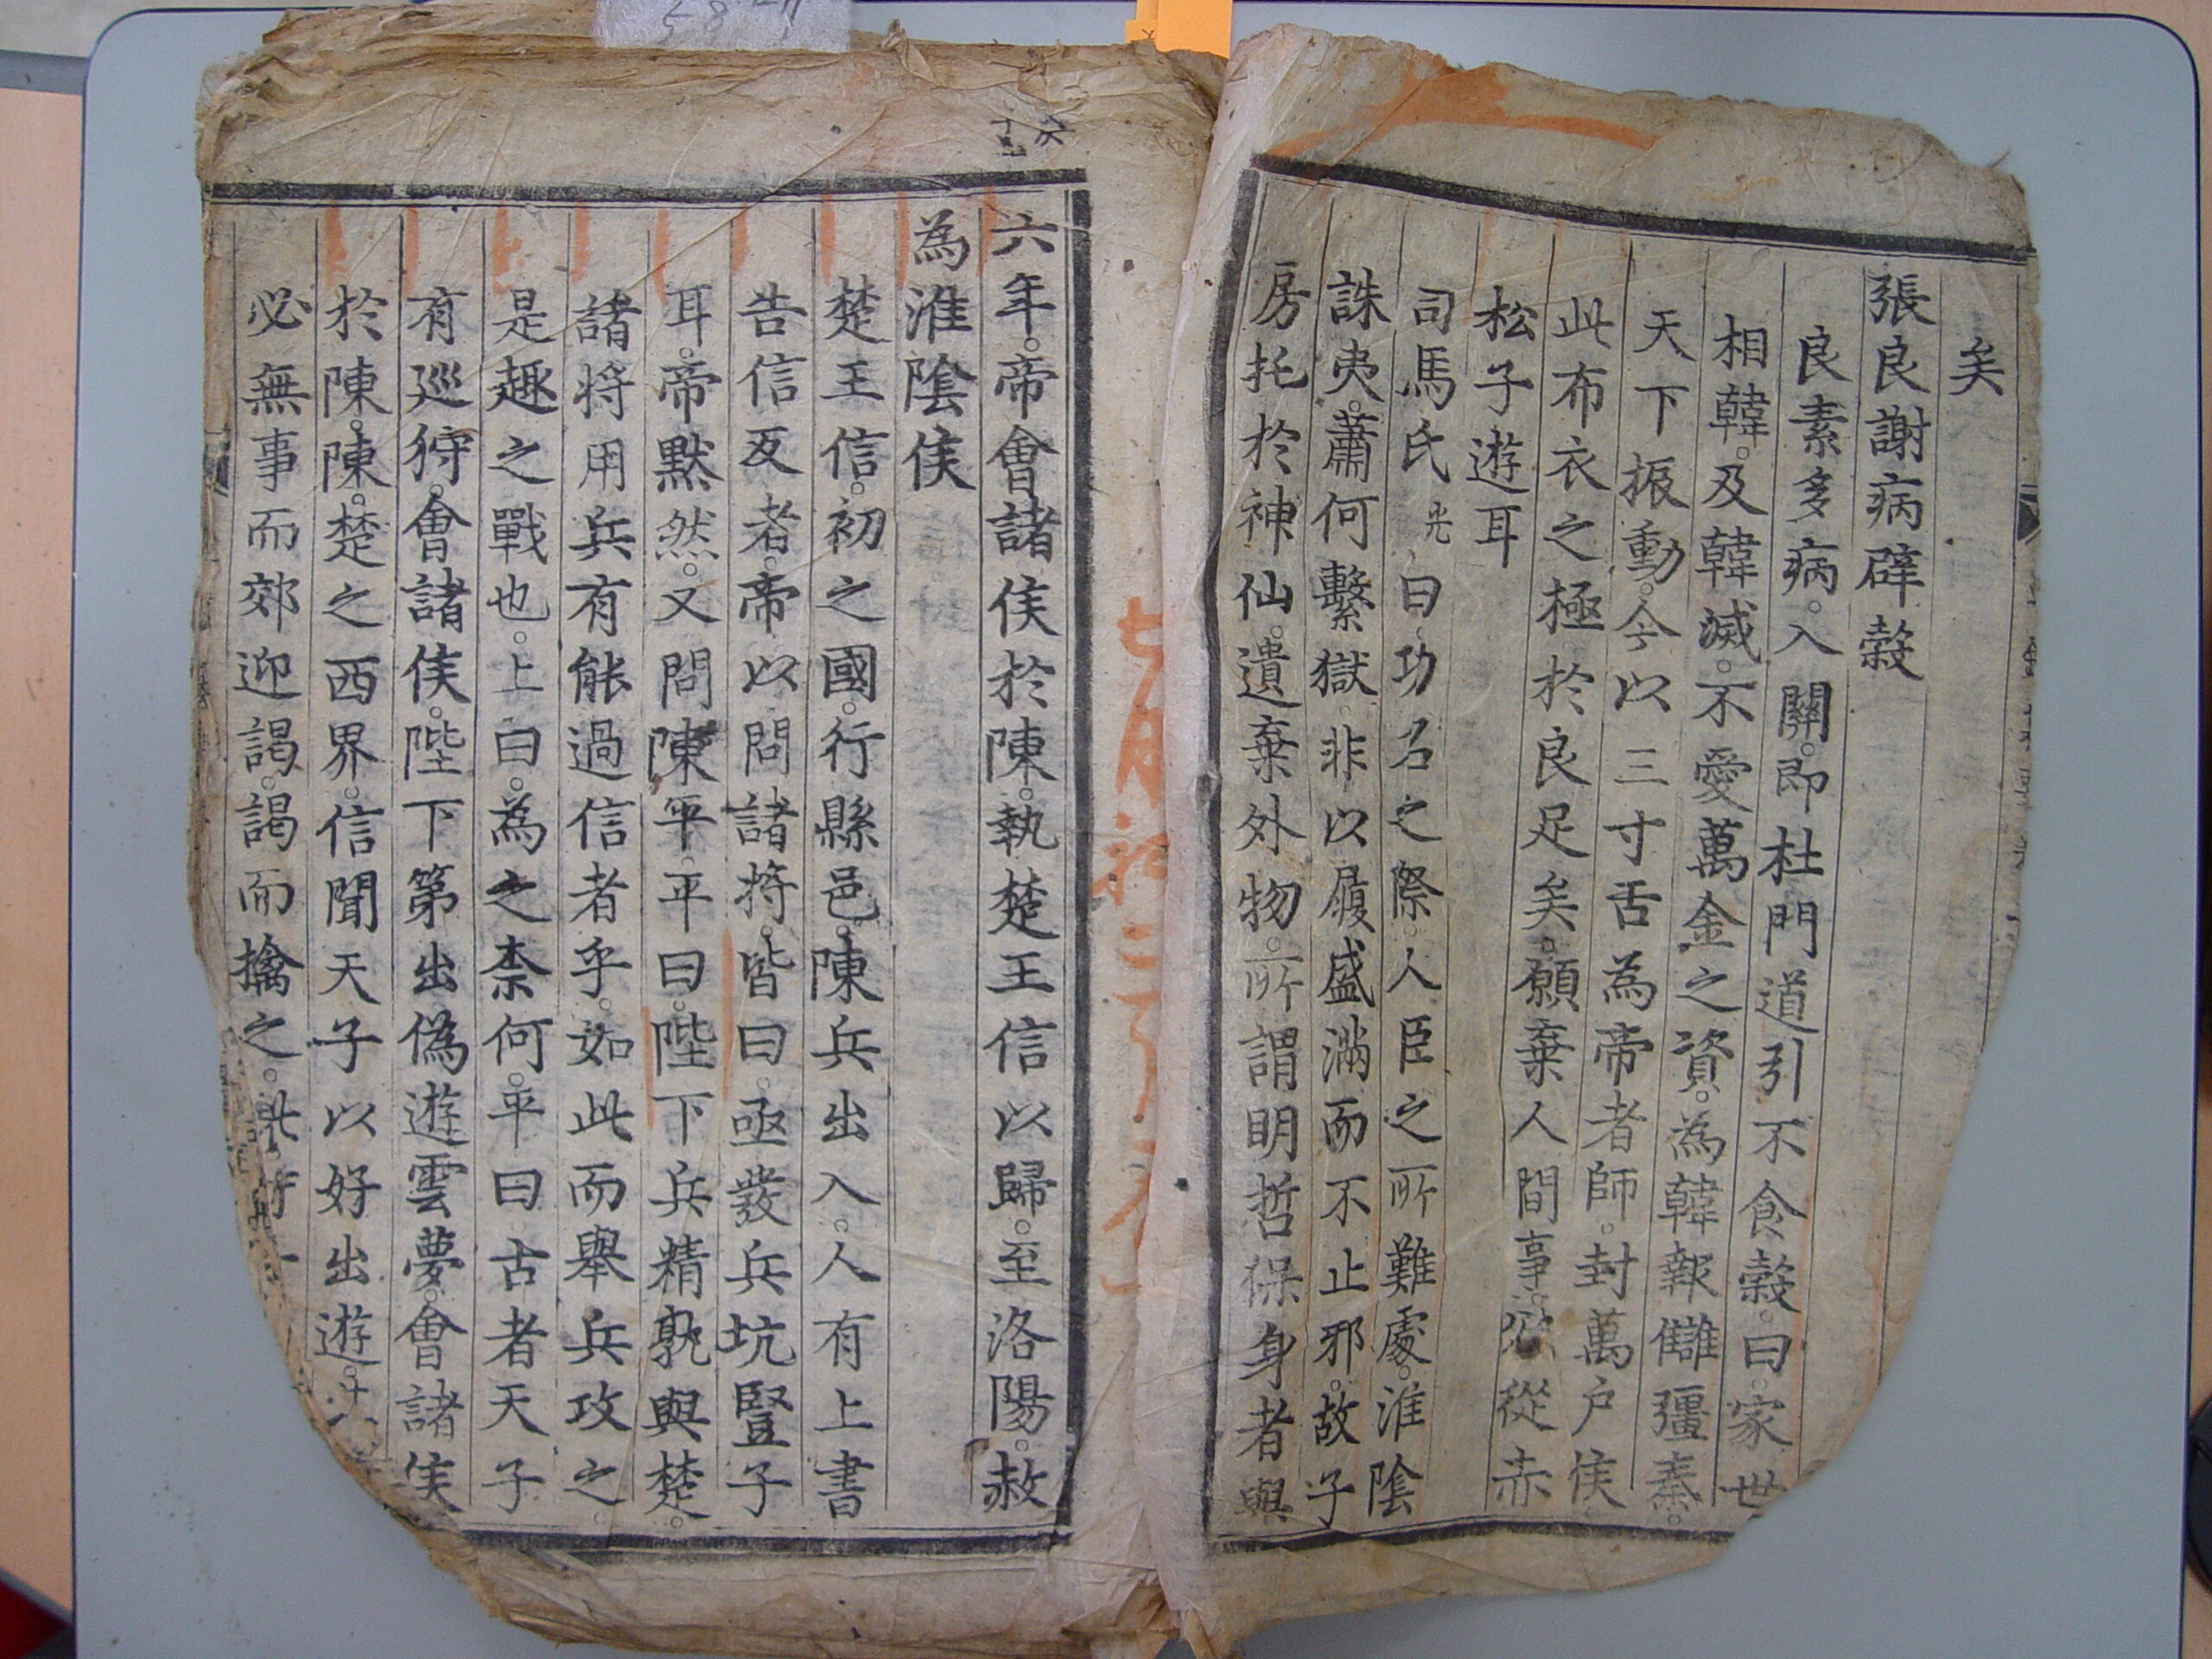 矣
張良謝病辟穀
良素多病。入關。即杜門道引不食穀。曰。家世
相韓。及韓滅。不愛萬金之資。為韓報讎彊秦。
天下振動。今以三寸舌為帝者師。封萬户侯
此布衣之極於良足矣。願棄人間事。從赤
松子遊耳
司馬氏光曰功名之際。人臣之所難處。淮陰
誅夷。蕭何繫獄。非以履盛滿而不止邪。故子
房托於神仙。遺棄外物。所謂明哲保身者與
六年。帝會諸侯於陳。執楚王信以歸。至洛陽。赦
為淮陰侯
楚王信。初之國。行縣邑。陳兵出入。人有上書
告信反者。帝以問諸將。皆曰。亟發兵坑豎子
耳。帝默然。又問陳平。平曰。陛下兵精孰與楚。
諸將用兵有能過信者乎。如此而舉兵攻之。
是趣之戰也。上曰。為之柰何。平曰古者天子
有巡狩。會諸侯。陛下第出偽遊雲夢。會諸侯
於陳。陳。楚之西界。信聞天子以好出遊。
必無事而郊迎謁。謁而擒之。此
58